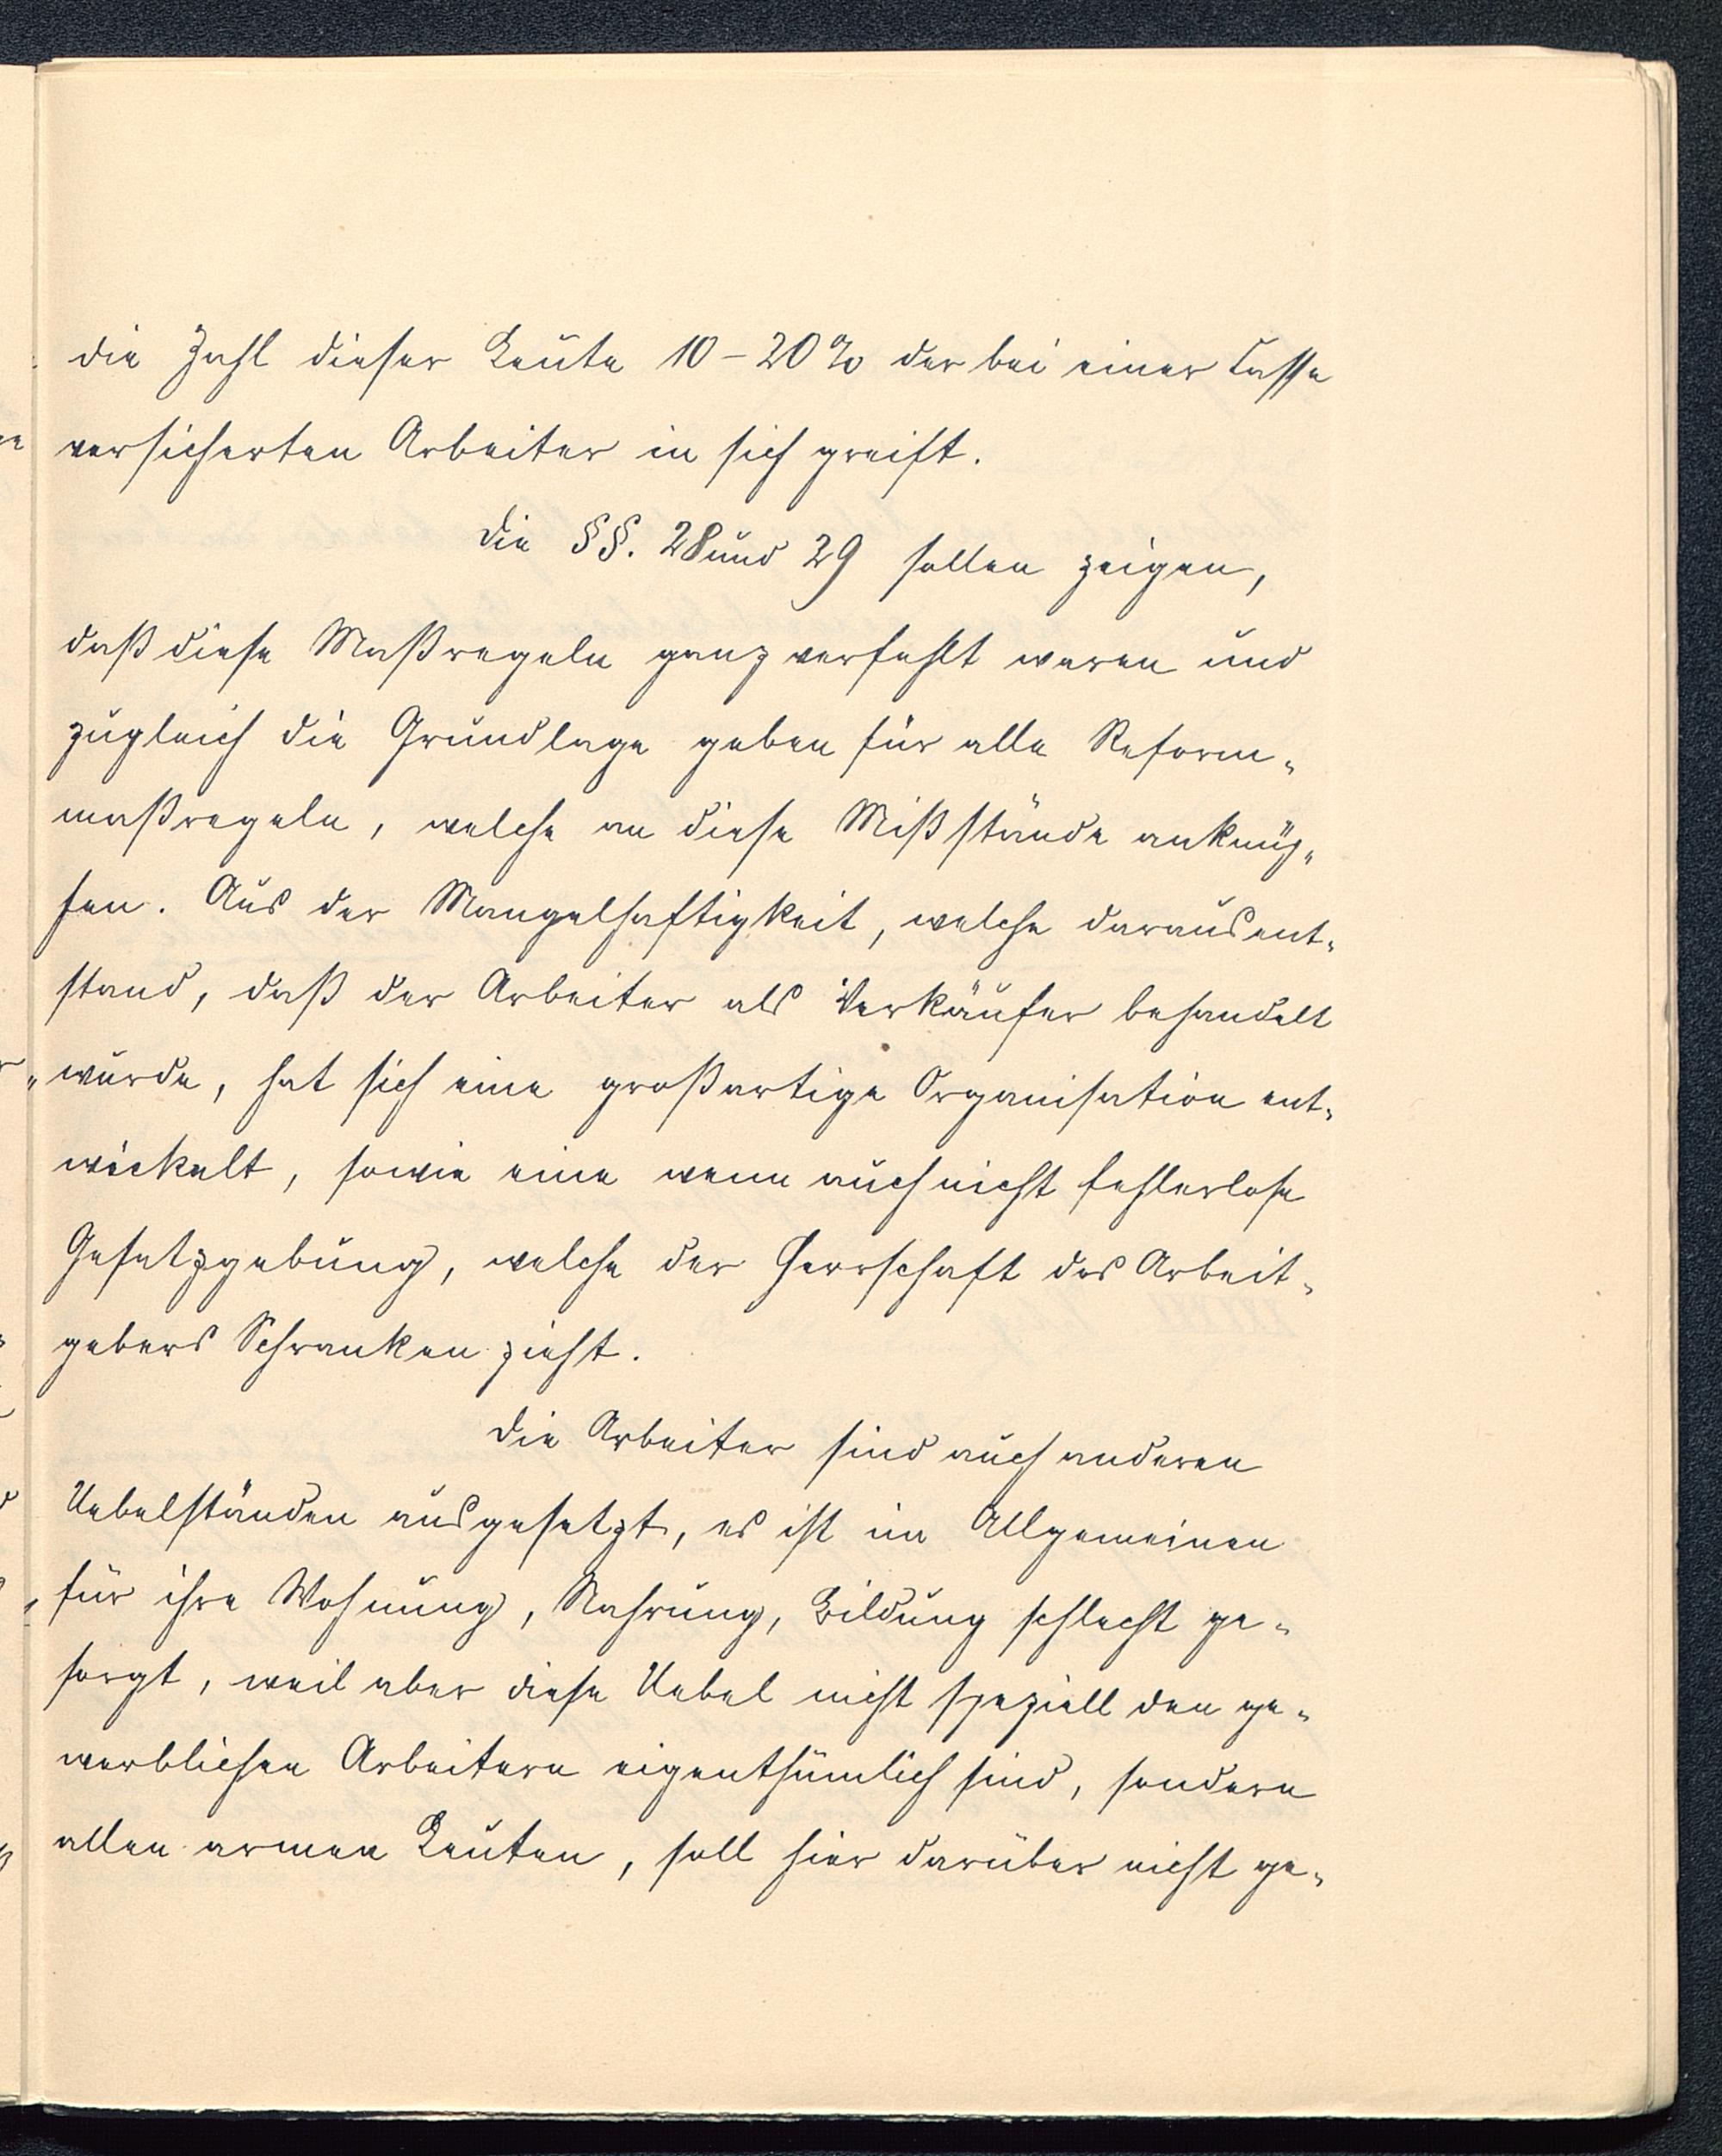 die Zahl dieser Leute 10-20% der bei einer Casse
versicherten Arbeiter in sich greift.
Die §§. 28 und 29 sollen zeigen,
daß diese Maßregeln ganz verfehlt waren und
zugleich die Grundlage geben für alle Reform-
maßregeln, welche an diese Mißstände anknüp-
fen. Aus der Mangelhaftigkeit, welche daraus ent-
stand, daß der Arbeiter als Verkäufer behandelt
wurde, hat sich eine großartige Organisation ent-
wickelt, sowie eine wenn auch nicht fehlerlose
Gesetzgebung, welche der Herrschaft des Arbeit-
gebers Schranken zieht.
Die Arbeiter sind auch anderen
Uebelständen ausgesetzt, es ist im Allgemeinen
für ihre Wohnung, Nahrung, Bildung schlecht ge-
sorgt, weil aber diese Uebel nicht speziell den ge-
werblichen Arbeitern eigenthümlich sind, sondern
allen armen Leuten, soll hier darüber nicht ge-